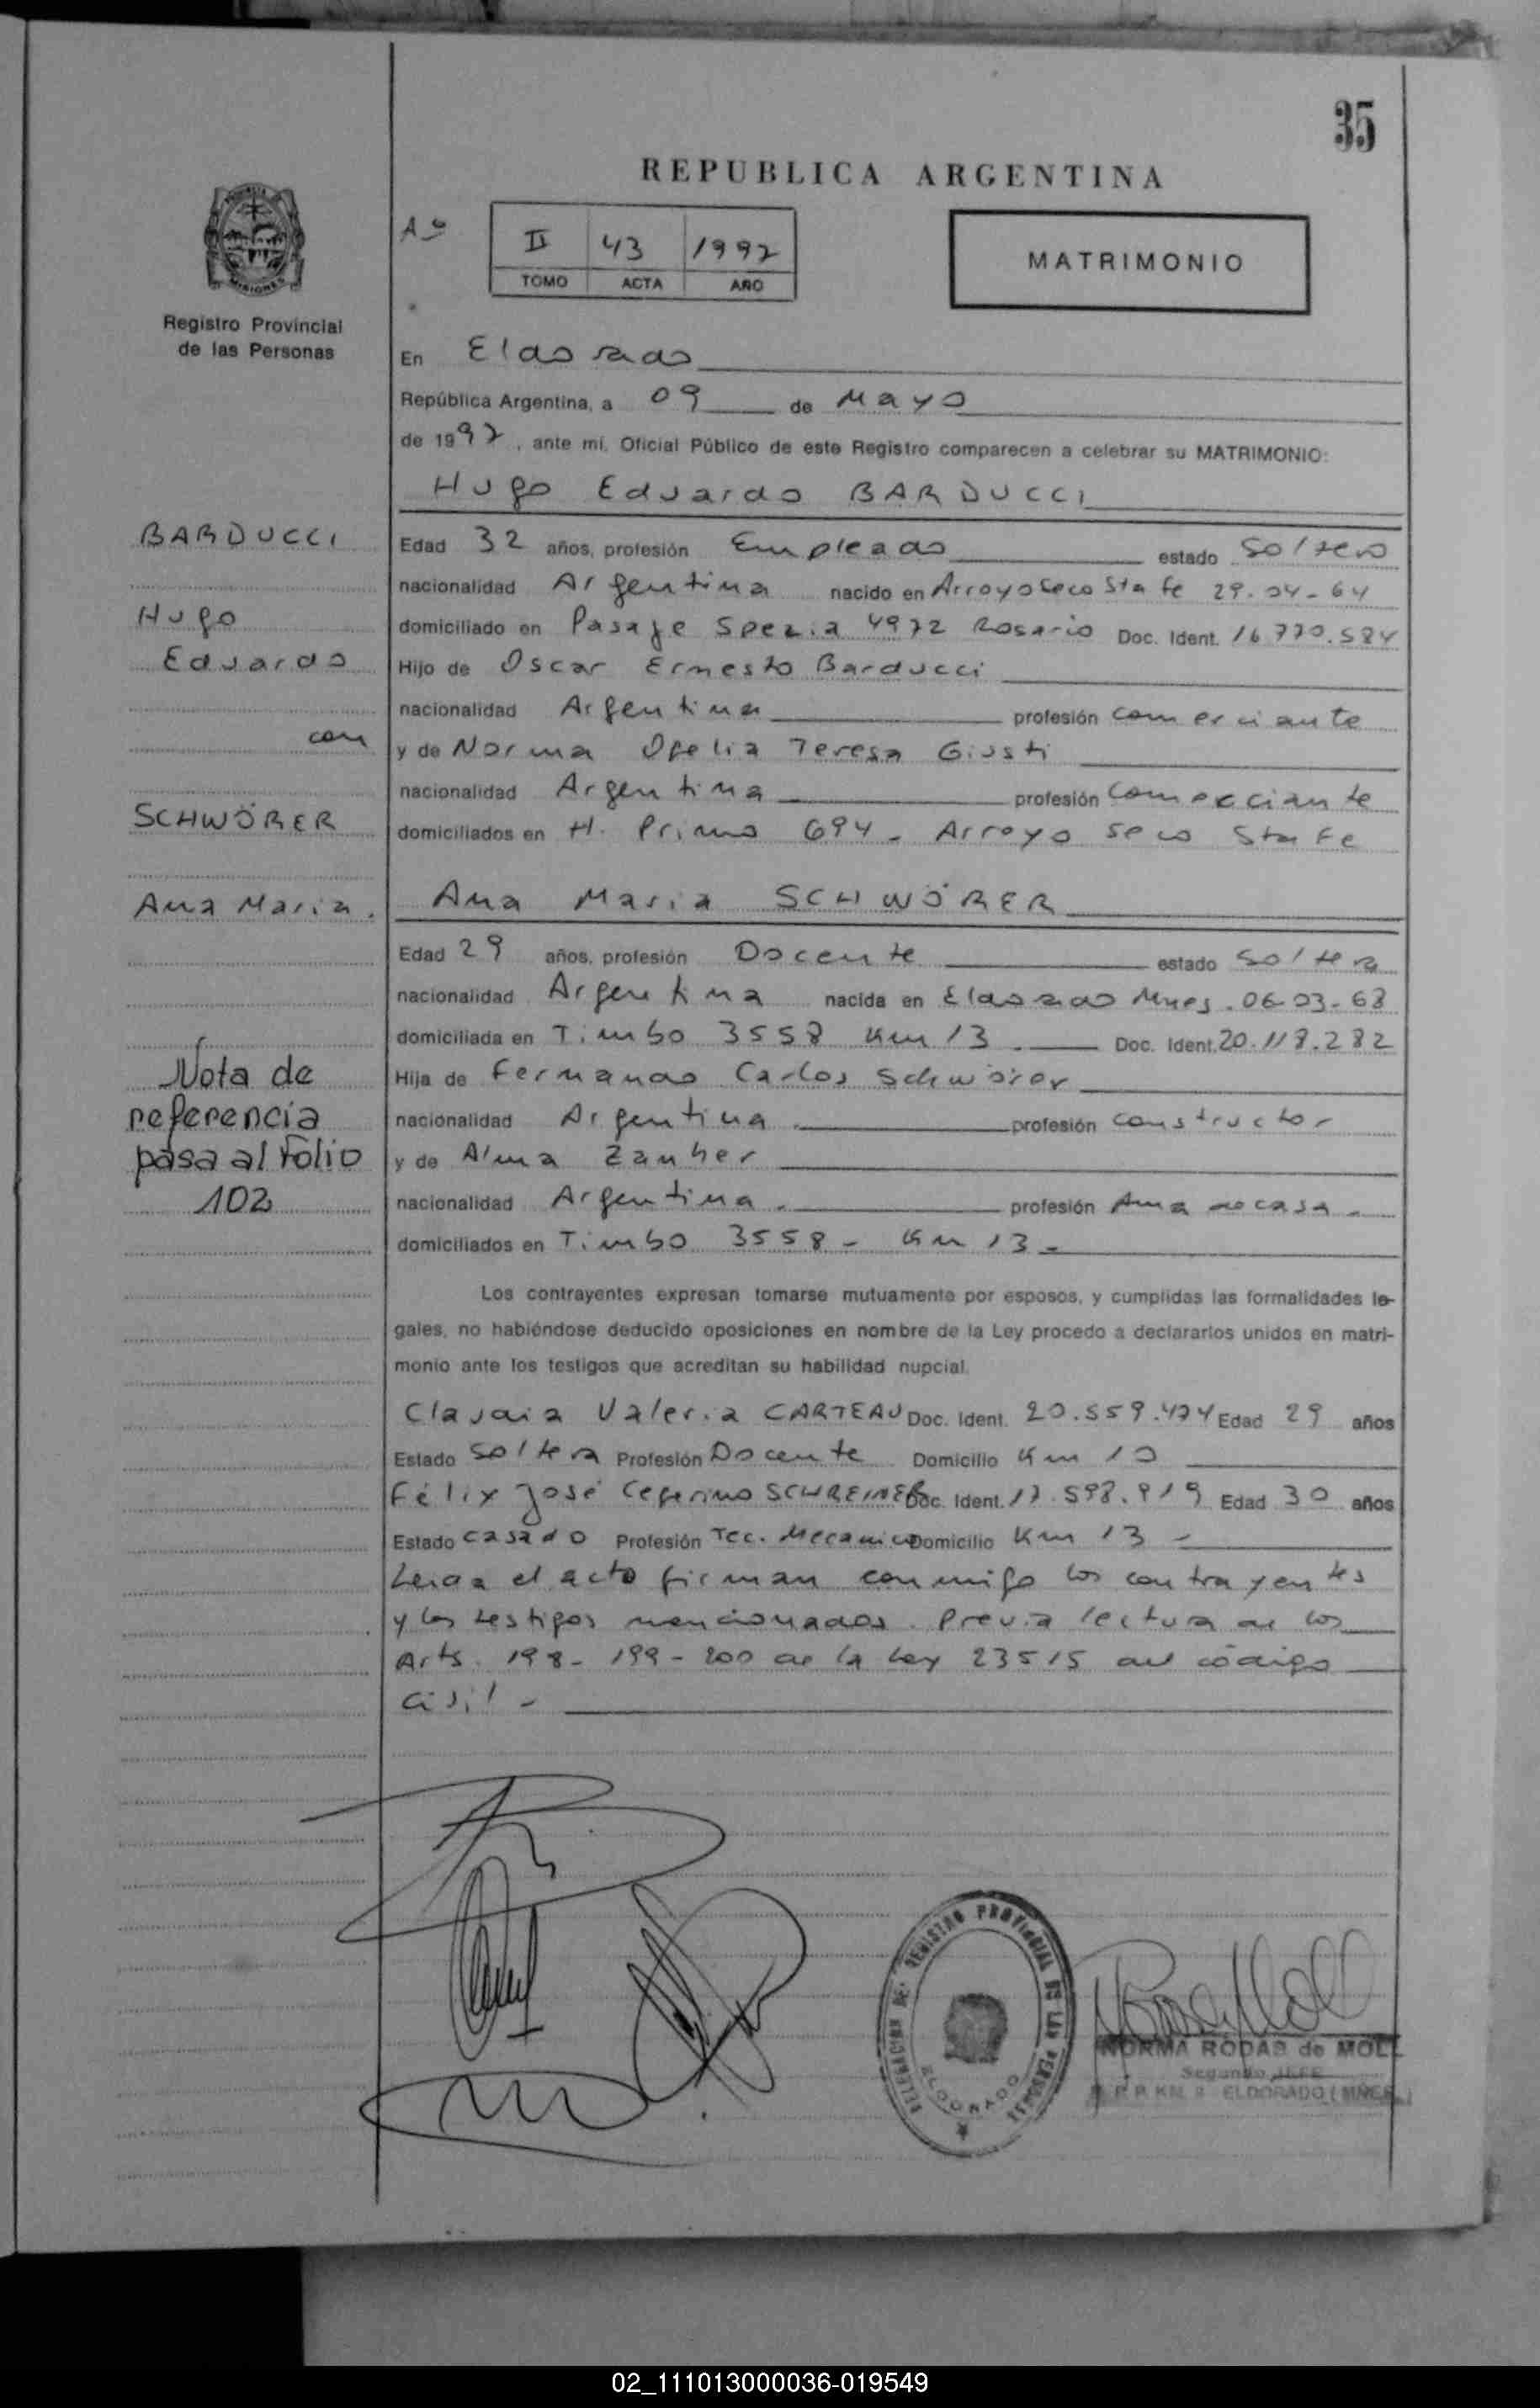 35
REPUBLICA ARGENTINA
MISIONES
Registro Provincial
de las Personas
Aº
II 43 1997
TOMO ACTA AÑO
MATRIMONIO
En Eldorado
República Argentina, a 09 de Mayo
de 1997, ante mí, Oficial Público de este Registro comparecen a celebrar su MATRIMONIO:
Hugo Eduardo BARDUCCI
BARDUCCI
Hugo
Eduardo
con
SCHWÖRER
Ana Maria.
Nota de
referencia
pasa al Folio
102
Edad 32 años, profesión Empleado estado soltero
nacionalidad Argentina nacido en Arroyo Seco Sta Fe 29-04-64
domiciliado en Pasaje Spezia 4972 Rosario Doc. Ident. 16.770.584
Hijo de Oscar Ernesto Barducci
nacionalidad Argentina profesión comerciante
y de Norma Ofelia Teresa Giusti
nacionalidad Argentina profesión comerciante
domiciliados en H. Primo 694 - Arroyo Seco Sta Fe
Ana Maria SCHWÖRER
Edad 29 años, profesión Docente estado soltera
nacionalidad Argentina nacida en Eldorado Mnes. 06-03-68
domiciliada en Timbo 3558 Km 13. Doc. Ident. 20.118.282
Hija de Fernando Carlos Schwörer
nacionalidad Argentina. profesión constructor
y de Alma Zanher
nacionalidad Argentina. profesión Ama de casa.
domiciliados en Timbo 3558 - Km 13 -
Los contrayentes expresan tomarse mutuamente por esposos, y cumplidas las formalidades le-
gales, no habiéndose deducido oposiciones en nombre de la Ley procedo a declararlos unidos en matri-
monio ante los testigos que acreditan su habilidad nupcial.
Claudia Valeria CARTEAU Doc. Ident. 20.559.474 Edad 29 años
Estado soltera Profesión Docente Domicilio Km 10
Félix José Ceferino SCHREINER Doc. Ident. 17.598.919 Edad 30 años
Estado casado Profesión Tec. Mecanico Domicilio Km 13 -
Leida el acto firman conmigo los contrayentes
y los testigos mencionados. Previa lectura de los
Arts. 198 - 199 - 200 de la Ley 23515 del código
civil -
DELEGACION DEL REGISTRO PROVINCIAL DE LAS PERSONAS
ELDORADO
NORMA RODAS de MOLL
Segundo JEFE
R. P. P. KM. 9 ELDORADO (MNES.)
02_111013000036-019549